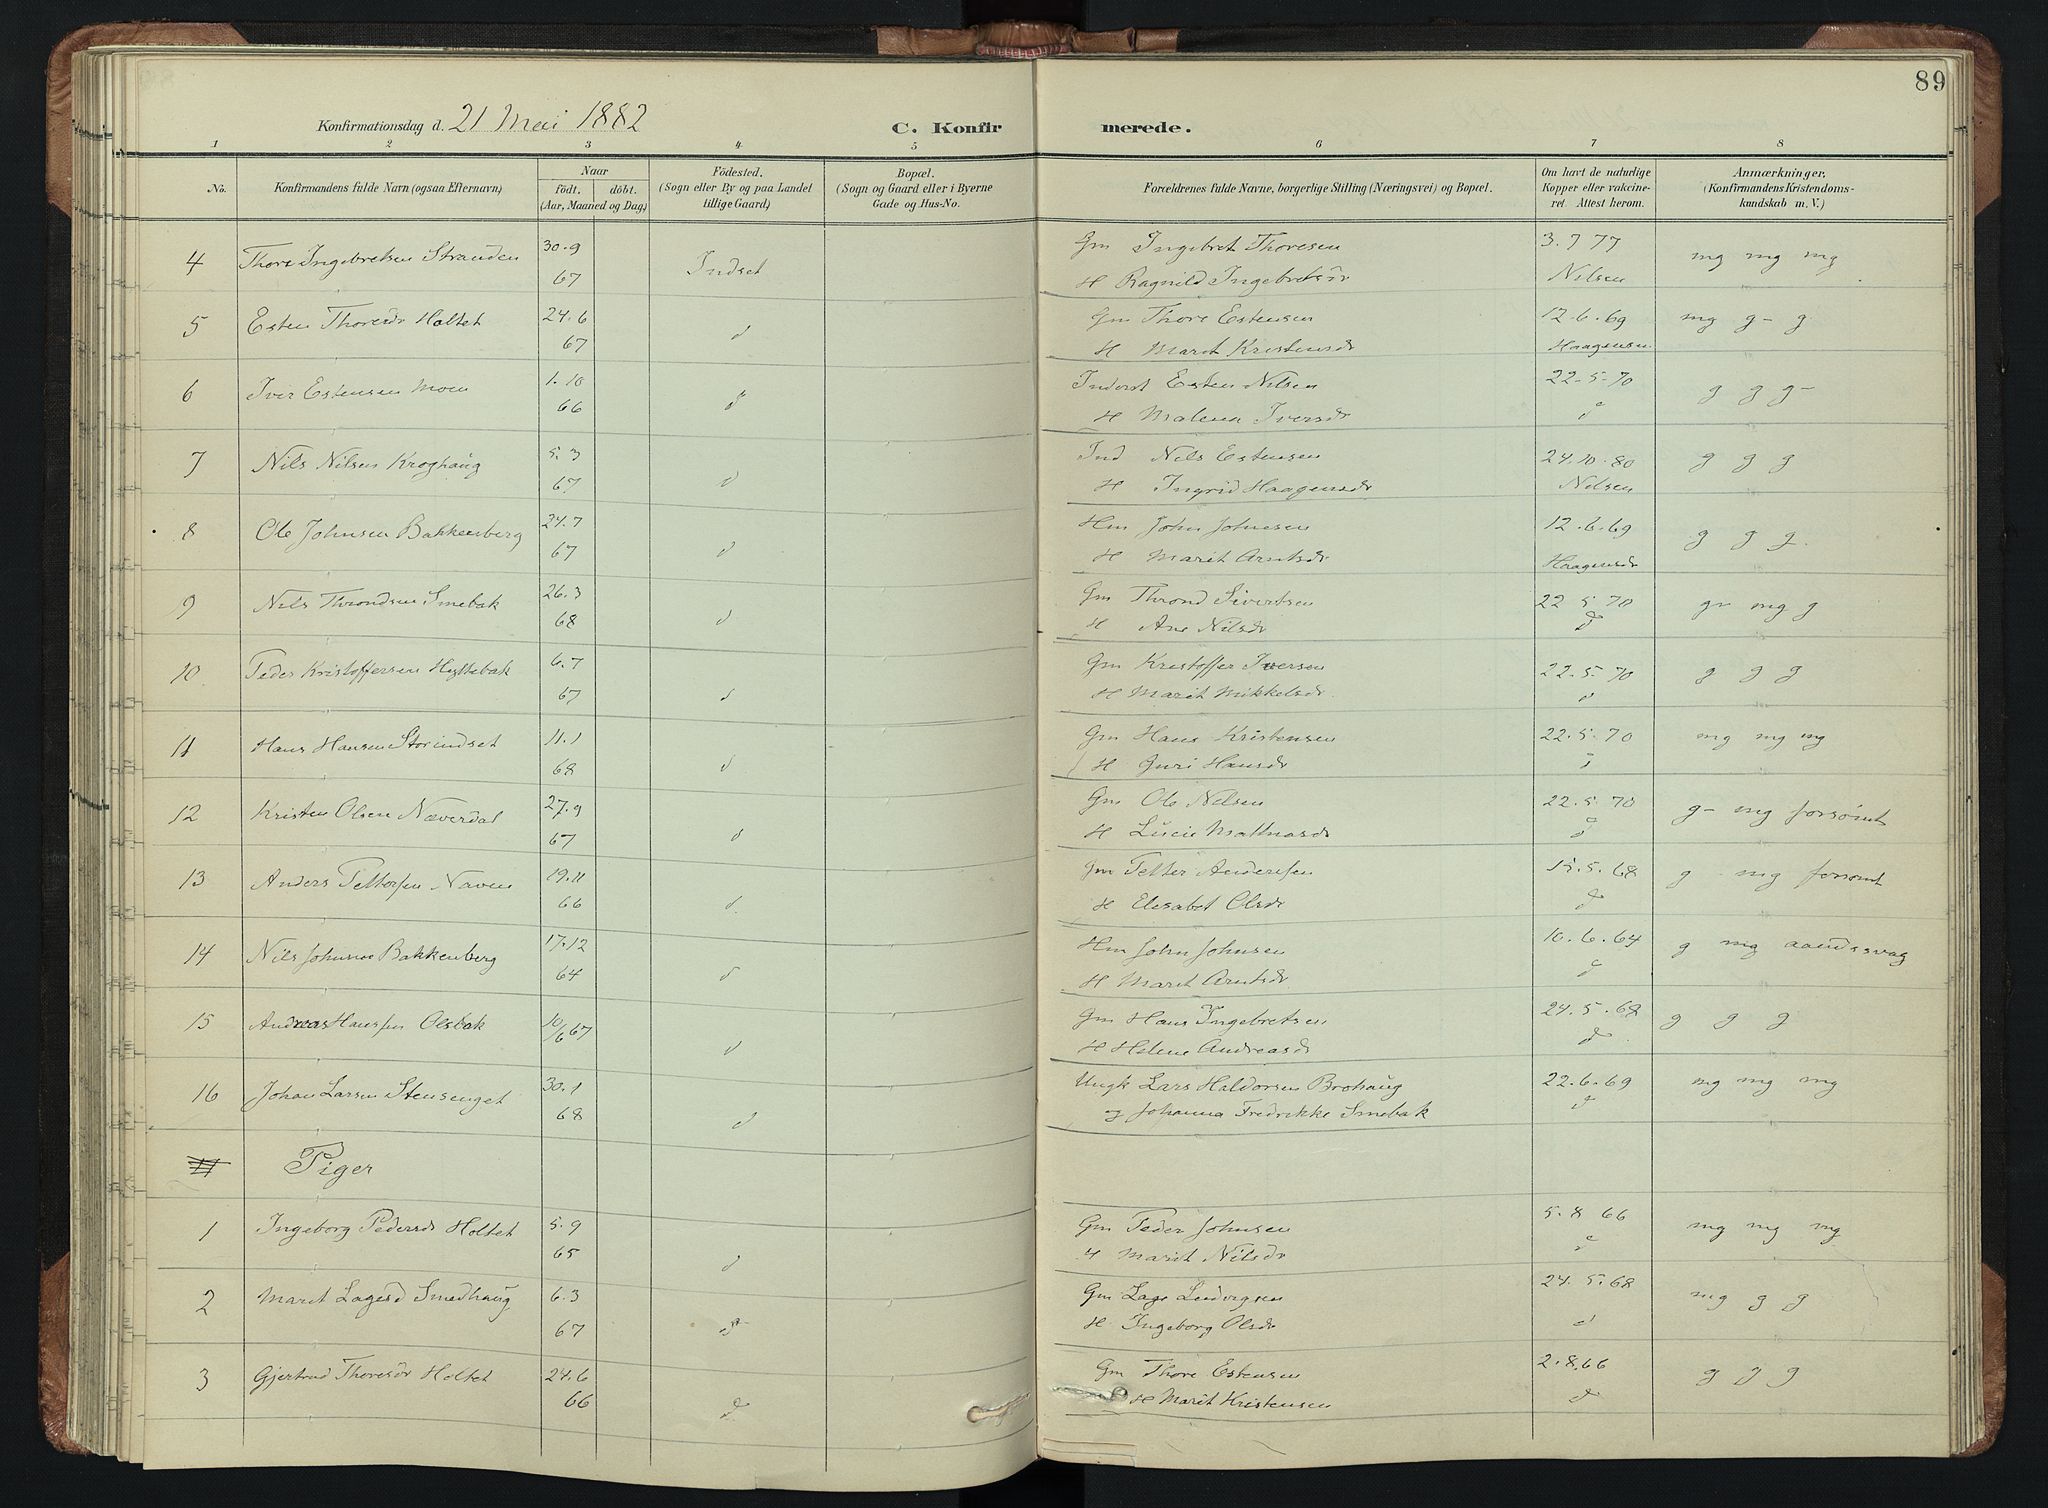 89
Konfirmationsdag d. 21 Mai 1882
C. Konfirmerede.
1 2 3 4 5 6 7 8
No.
Konfirmandens fulde Navn (ogsaa Efternavn)
Naar
födt. döbt.
(Aar, Maaned og Dag)
Födested.
(Sogn eller By og paa Landet
tillige Gaard)
Bopæl.
(Sogn og Gaard eller i Byerne
Gade og Hus-No.
Forældrenes fulde Navne, borgerlige Stilling (Næringsvei) og Bopæl.
Om havt de naturlige
Kopper eller vakcine-
ret. Attest herom.
Anmærkninger.
(Konfirmandens Kristendoms-
kundskab m. V.)
4 Thore Ingebretsen Stranden 30.9 Indset Gm Ingebret Thoresen 3.7 77 mg mg mg
67 H Ragnild Ingebretsdr Nilsen
5 Esten Thoresdr Holtet 24.6 d Gm Thore Estensen 12.6.69 mg g- g
67 H Marit Kristensdr Haagensen
6 Iver Estensen Moen 1.10 d Inderst Esten Nilsen 22.5.70 g g g-
66 H Malena Iversdr d
7 Nils Nilsen Kroghaug 5.3 d Ind Nils Estensen 24.10.80 g g g
67 H Ingrid Haagensdr Nilsen
8 Ole Johnsen Bakkenberg 24.7 d Hm John Johnesen 12.6.69 g g g.
67 H Marit Arntsdr Haagensdr
9 Nils Throndsen Smebak 26.3 d Gm Thrond Sivertsen 22 5 70 g- mg g
68 H Ane Nilsdr d
10 Peder Kristoffersen Hyttebak 6.7 d Gm Kristoffer Iversen 22.5.70 g g g
67 H Marit Mikkelsdr d
11 Hans Hansen Storindset 11.1 d Gm Hans Kristensen 22.5.70 mg mg mg
68 H Guri Hansdr d
12 Kristen Olsen Næverdal 27.9 d Gm Ole Nilsen 22.5.70 g- mg forsømt
67 H Lucie Mathiasdr d
13 Anders Pettersen Naven 19.11 d. Gm Petter Andersen 15.5.68 g - mg forsømt
66 H Elisabet Olsdr d
14 Nils Johnsen Bakkenberg 17.12 d Hm John Johnsen 10.6.64 g mg aandssvag
64 H Marit Arntsdr d
15 Andreas Hanssen Olsbak 10/6 67 d Gm Hans Ingebretsen 24.5.68 g g g
H Helene Andreasdr d
16 Johan Larsen Stensenget 30.1 d Ungk Lars Haldorsen Brohaug 22.6.69 mg mg mg
68 og Johanna Fredrikke Smebak d
Piger
1 Ingeborg Pedersd Holtet 5.9 d Gm Peder Johnsen 5.8 66 mg mg mg
65 H Marit Nilsdr d
2 Marit Lagesd Smedhaug 6.3 d Gm Lage Ludvigsen 24.5.68 mg g g
67 H Ingeborg Olsdr d
3 Gjertrud Thoresdr Holtet 24.6 d Gm Thore Estensen 2.8.66 g g g
66 H Marit Kristensen d